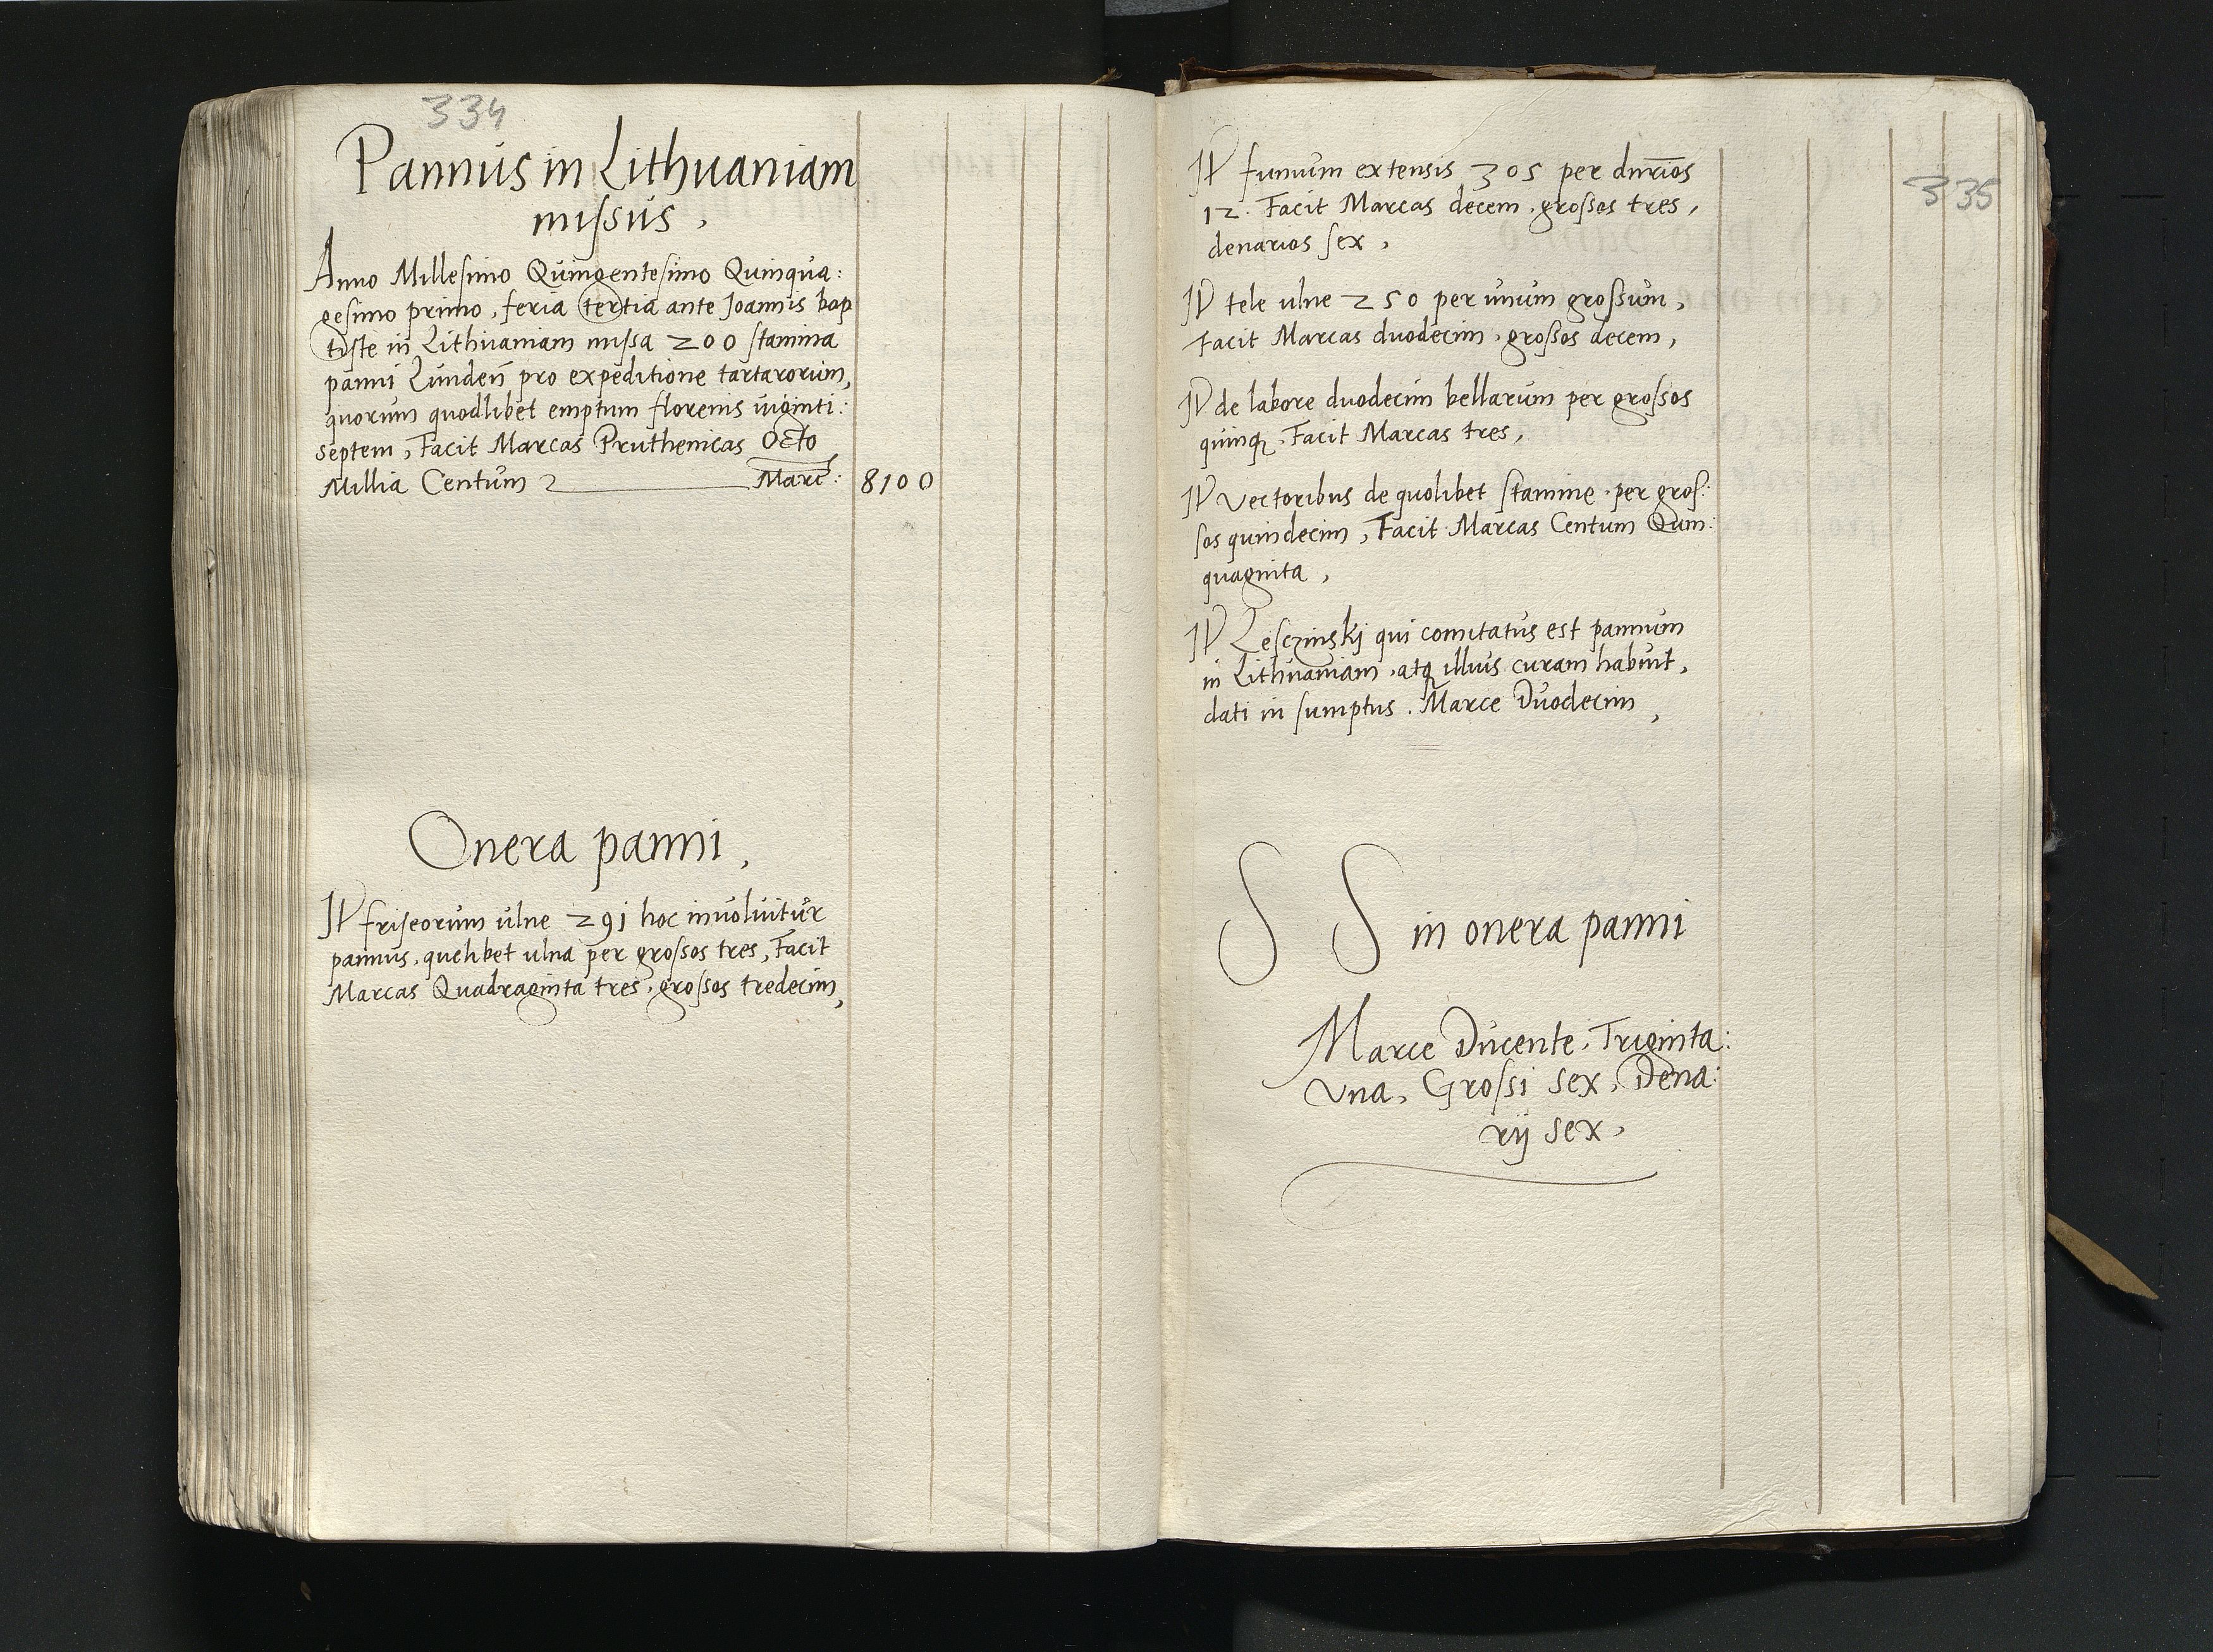 334
Pannus in Lithuaniam
missus,
Anno Millesimo Quingentesimo Quinqua:
gesimo primo, feria tertia ante Joannis bap
tiste in Lithuaniam missa 200 stamina
panni Lunden̄ pro expeditione tartarorum,
quorum quodlibet emptum florenis viginti:
septem, Facit Marcas Pruthenicas Octo
Millia Centum Marc: 8100
Onera panni,
It friseorum ulne 291 hoc involvitur
pannus, quelibet ulna per grossos tres, Facit
Marcas Quadraginta tres, grossos tredecim,
335
It funium extensis 305 per dnrios
12. Facit Marcas decem, grossos tres,
denarios sex,
It tele ulne 250 per unum grossum,
Facit Marcas duodecim, grossos decem,
It de labore duodecim bellarum per grossos
quinq. Facit Marcas tres,
It vectoribus de quolibet stamine, per gros:
sos quindecim, Facit Marcas Centum Quin:
quaginta,
It Lesczinskj qui comitatus est pannum
in Lithuaniam, atq illius curam habuit,
dati in sumptus. Marce Duodecim,
S S in onera panni
Marce Ducente, Triginta:
Una, Grossi sex, Dena:
rij sex,